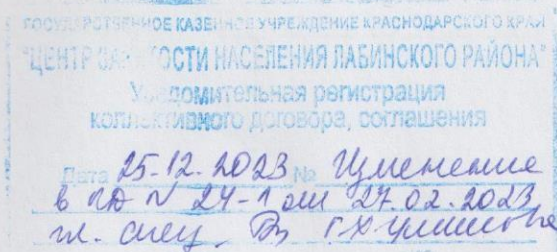 ГОСУДАРСТВЕННОЕ КАЗЕННОЕ УЧРЕЖДЕНИЕ КРАСНОДАРСКОГО КРАЯ
"ЦЕНТР ЗАНЯТОСТИ НАСЕЛЕНИЯ ЛАБИНСКОГО РАЙОНА"
Уведомительная регистрация
коллективного договора, соглашения
Дата 25.12.2023 № Изменение
в КД № 24-1 от 27.02.2023
гл. спец.